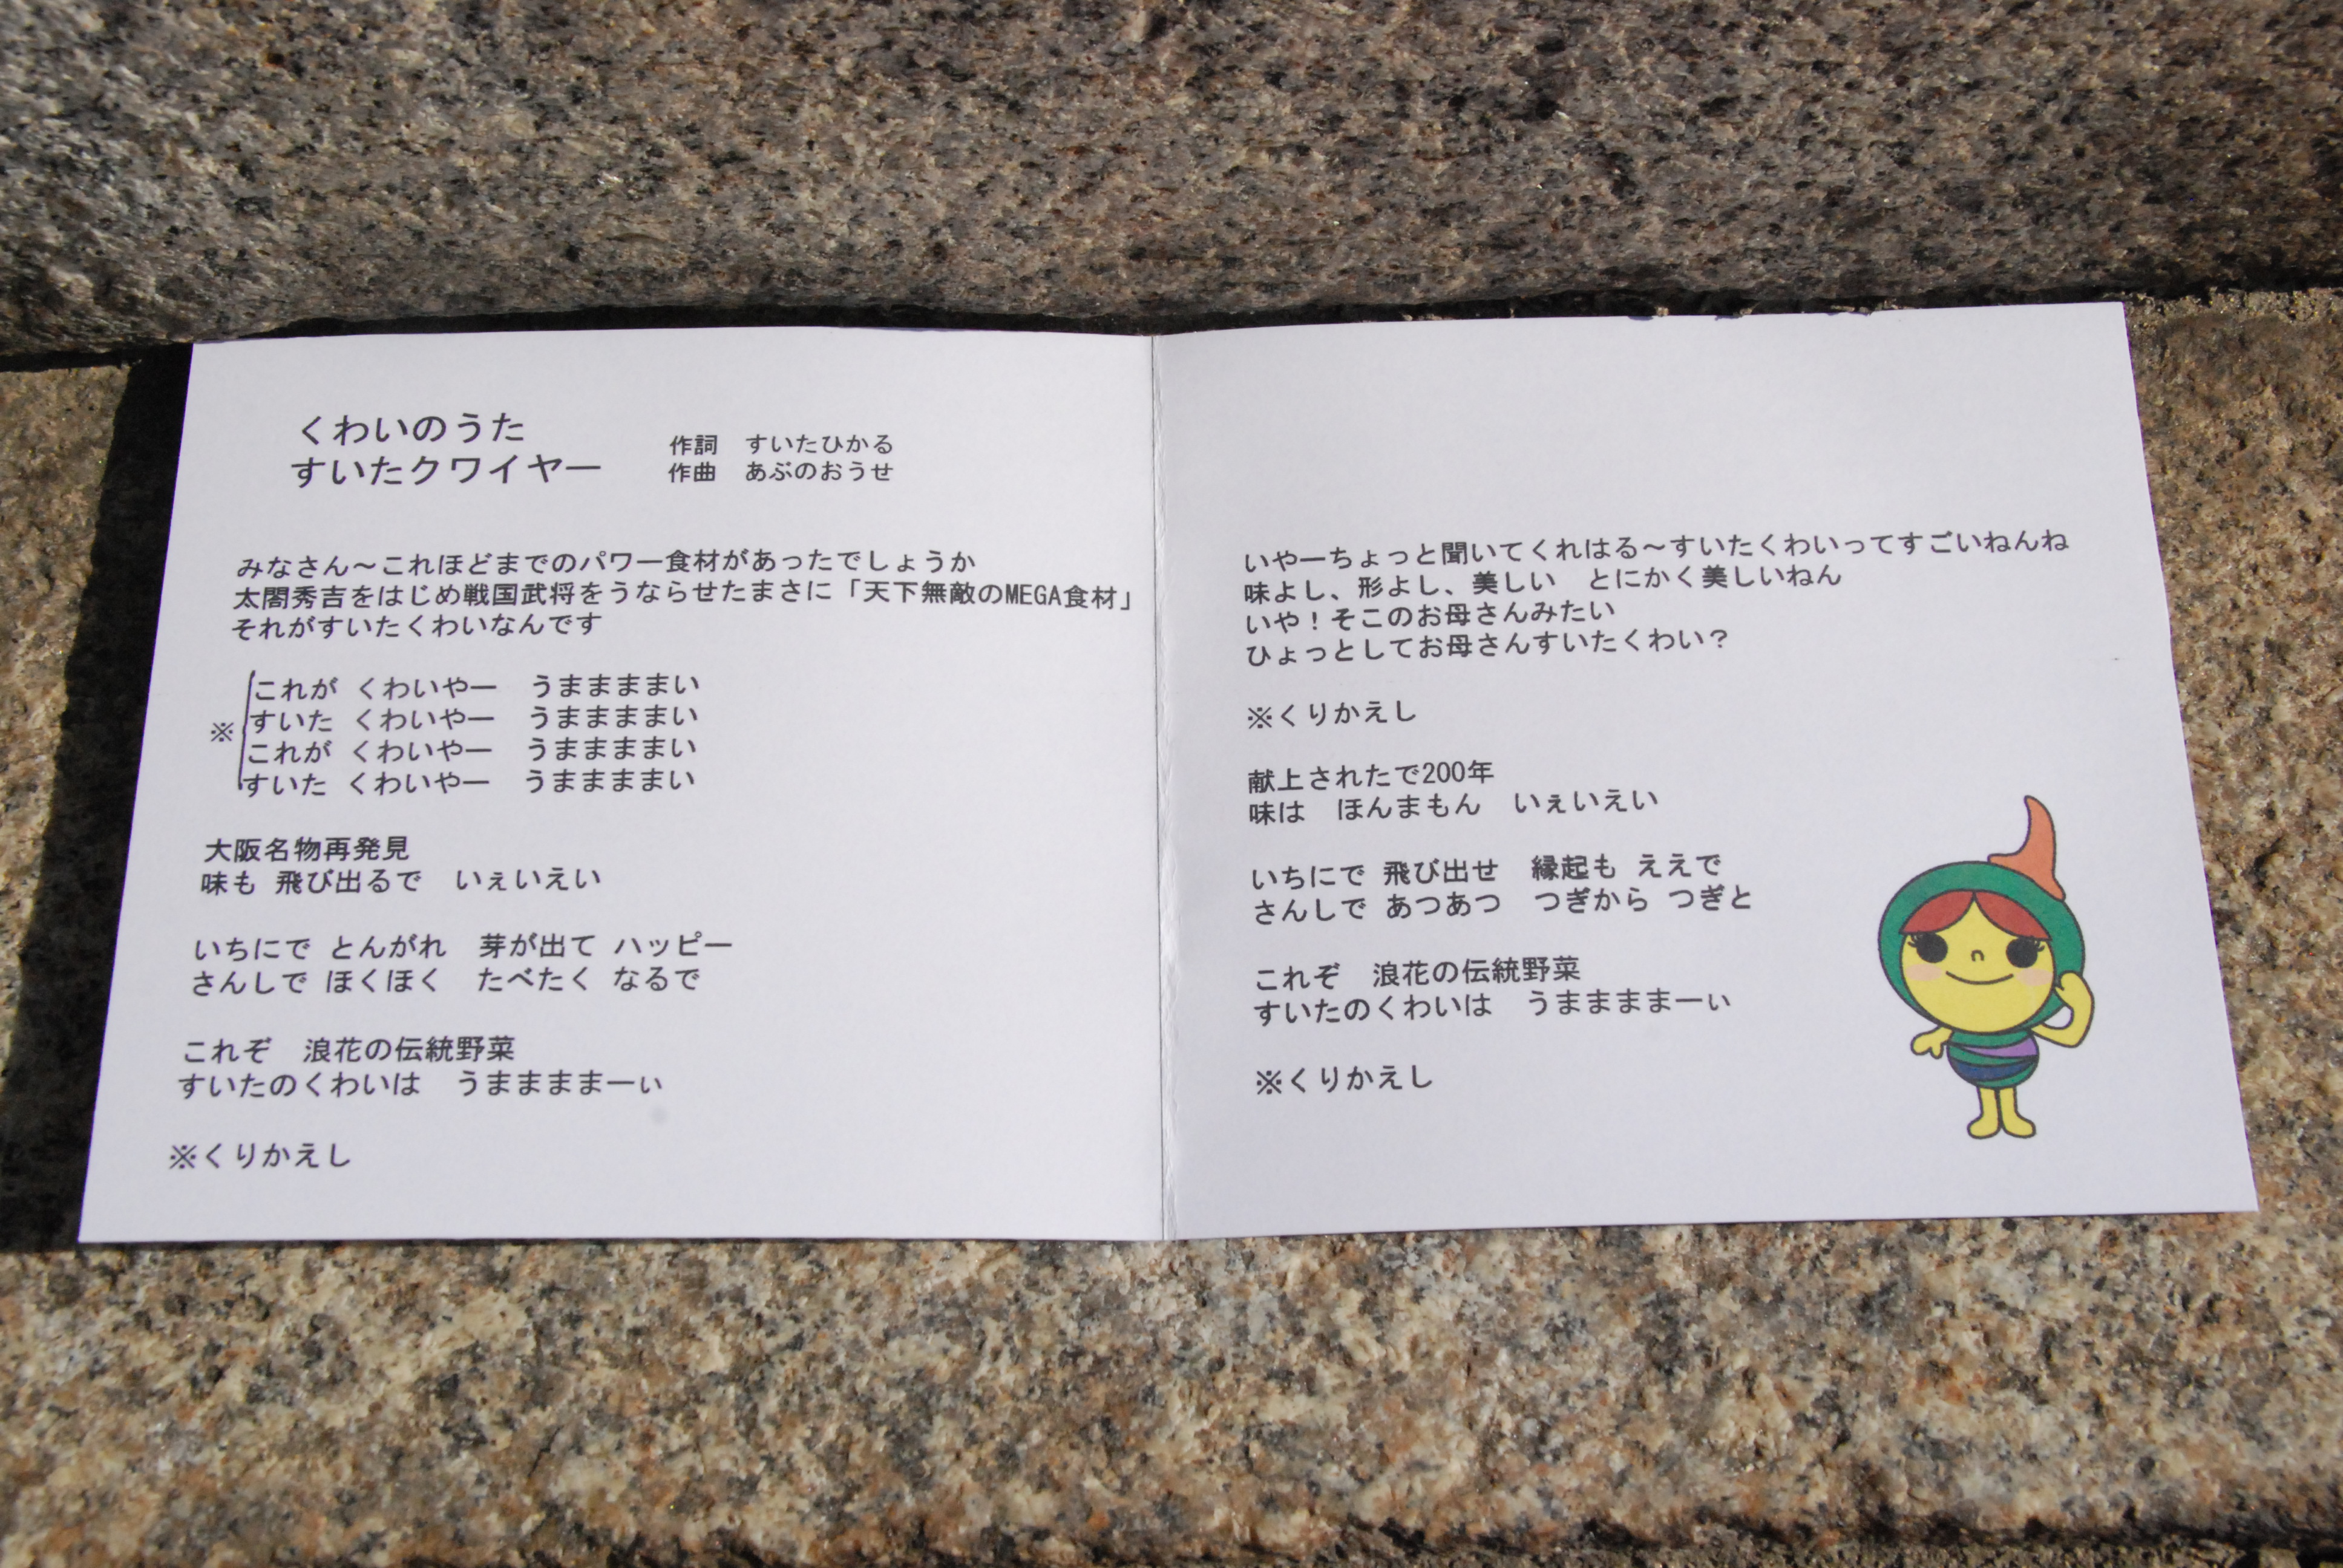 くわいのうた
すいたクワイヤー
作詞　すいたひかる
作曲　あぶのおうせ
みなさん～これほどまでのパワー食材があったでしょうか
太閤秀吉をはじめ戦国武将をうならせたまさに「天下無敵のMEGA食材」
それがすいたくわいなんです
これが くわいやー　うまままままい
すいた くわいやー　うまままままい
※
これが くわいやー　うまままままい
すいた くわいやー　うまままままい
大阪名物再発見
味も 飛び出るで　いぇいえい
いちにで とんがれ　芽が出て ハッピー
さんしで ほくほく　たべたく なるで
これぞ　浪花の伝統野菜
すいたのくわいは　うまままままーぃ
※くりかえし
いやーちょっと聞いてくれはる～すいたくわいってすごいねんね
味よし、形よし、美しい　とにかく美しいねん
いや！そこのお母さんみたい
ひょっとしてお母さんすいたくわい？
※くりかえし
献上されたで200年
味は　ほんまもん　いぇいえい
いちにで 飛び出せ　縁起も ええで
さんしで あつあつ　つぎから つぎと
これぞ　浪花の伝統野菜
すいたのくわいは　うまままままーぃ
※くりかえし